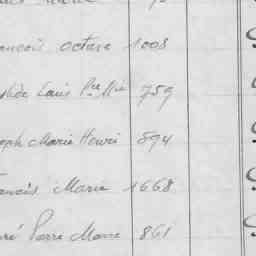 ancois Octave 1008
Louis Pre Mie 759
eph Marie Henri 894
ancis Marie 1668
ré Pierre Marie 861